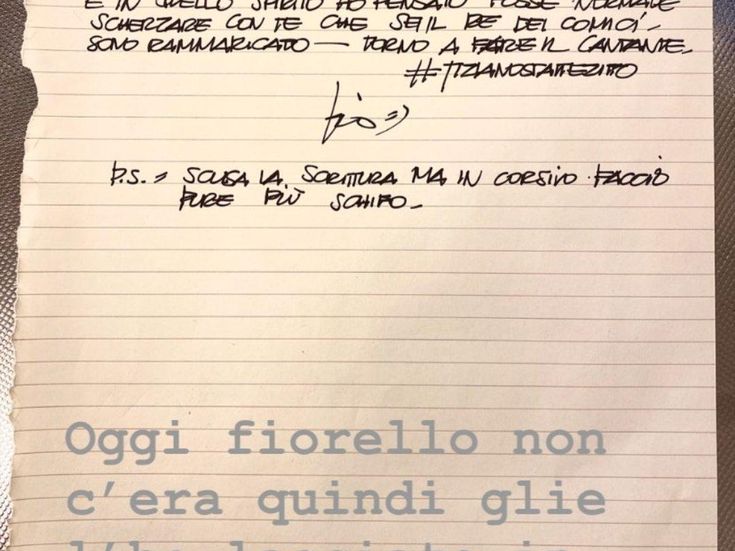 E IN QUELLO SPIRITO HO PENSATO FOSSE NORMALE
SCHERZARE CON TE CHE SEI IL RE DEI COMICI_
SONO RAMMARICATO — TORNO A FARE IL CANTANTE_
#TIZIANOSTATTEZITTO
P.S. = SCUSA LA SCRITTURA MA IN CORSIVO FACCIO
PURE PIÙ SCHIFO_
Oggi fiorello non
c’era quindi glie